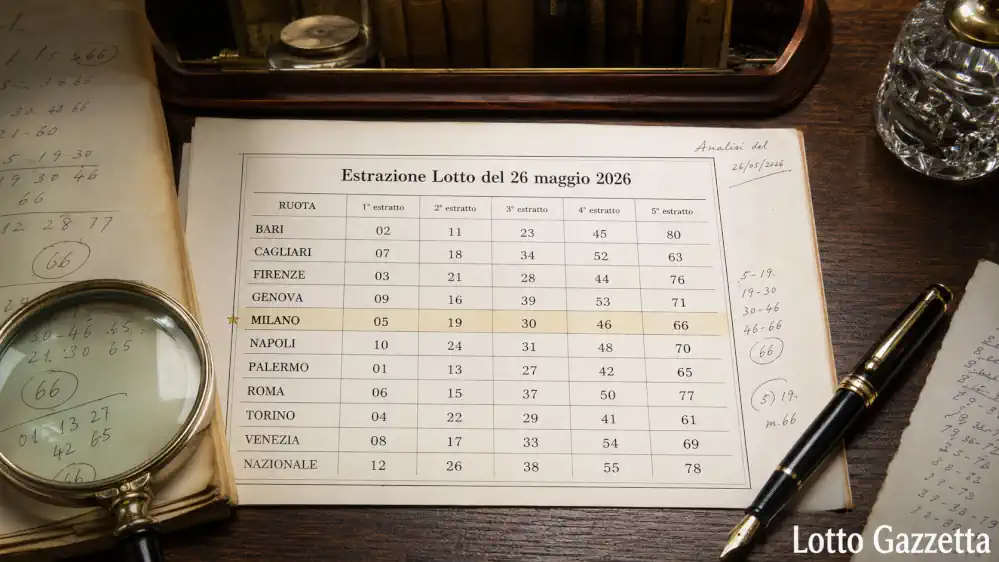 Estrazione Lotto del 26 maggio 2026
RUOTA 1° estratto 2° estratto 3° estratto 4° estratto 5° estratto
BARI 02 11 23 45 80
CAGLIARI 07 18 34 52 63
FIRENZE 03 21 28 44 76
GENOVA 09 16 39 53 71
MILANO 05 19 30 46 66
NAPOLI 10 24 31 48 70
PALERMO 01 13 27 42 65
ROMA 06 15 37 50 77
TORINO 04 22 29 41 61
VENEZIA 08 17 33 54 69
NAZIONALE 12 26 38 55 78
Analisi del
26/05/2026
5-19.
19-30
30-46
46-66
66
(5) 19.
m.66
21-60
5-19-30
19 30 46
66
12 28 77
66
30-46 65
21.30 65
66
01 13 27
42 65
66
Lotto Gazzetta